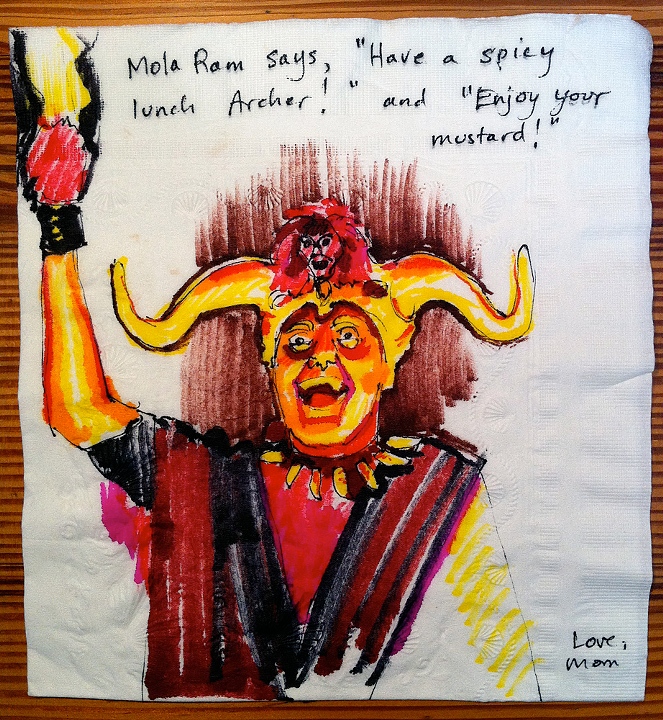 Mola Ram says, "Have a spicy
lunch Archer!" and "Enjoy your
mustard!"
Love,
Mom